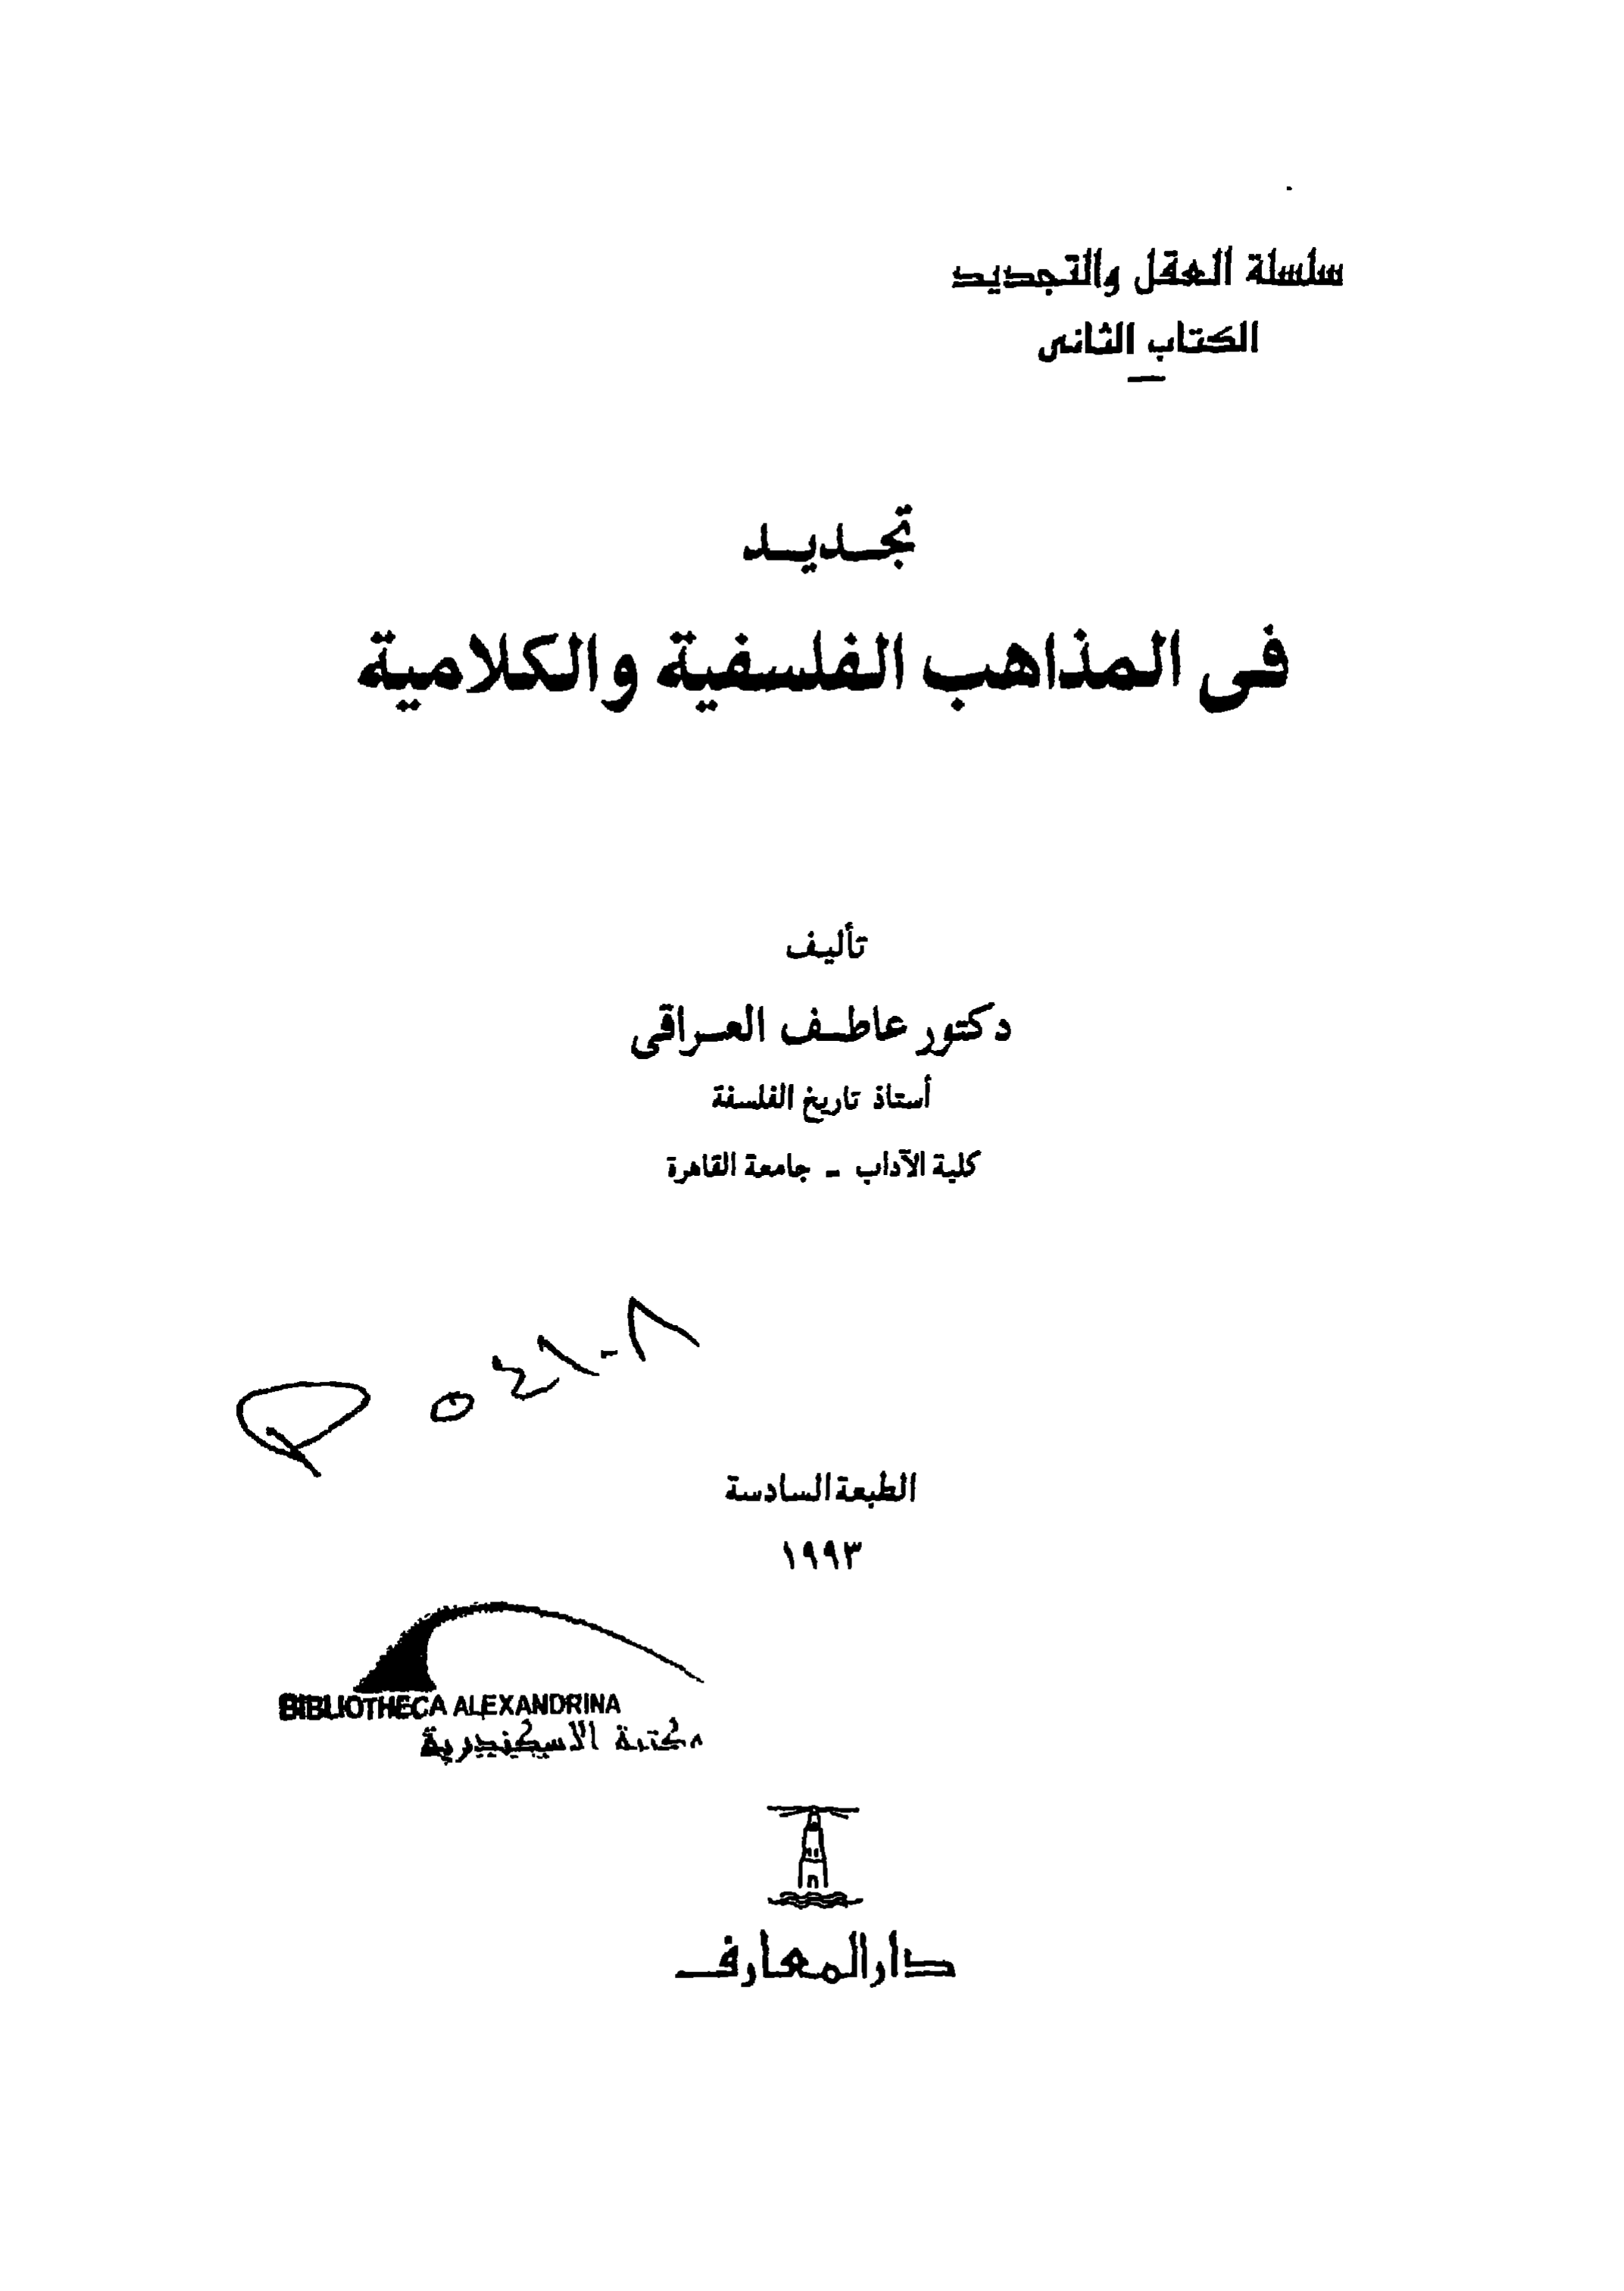 سلسلة العقل والتجديد
الكتاب الثانى
تجديد
فى المذاهب الفلسفية والكلامية
تأليف
دكتور عاطف العراقى
أستاذ تاريخ الفلسفة
كلية الآداب - جامعة القاهرة
الطبعة السادسة
١٩٩٣
BIBLIOTHECA ALEXANDRINA
مكتبة الاسكندرية
دار المعارف